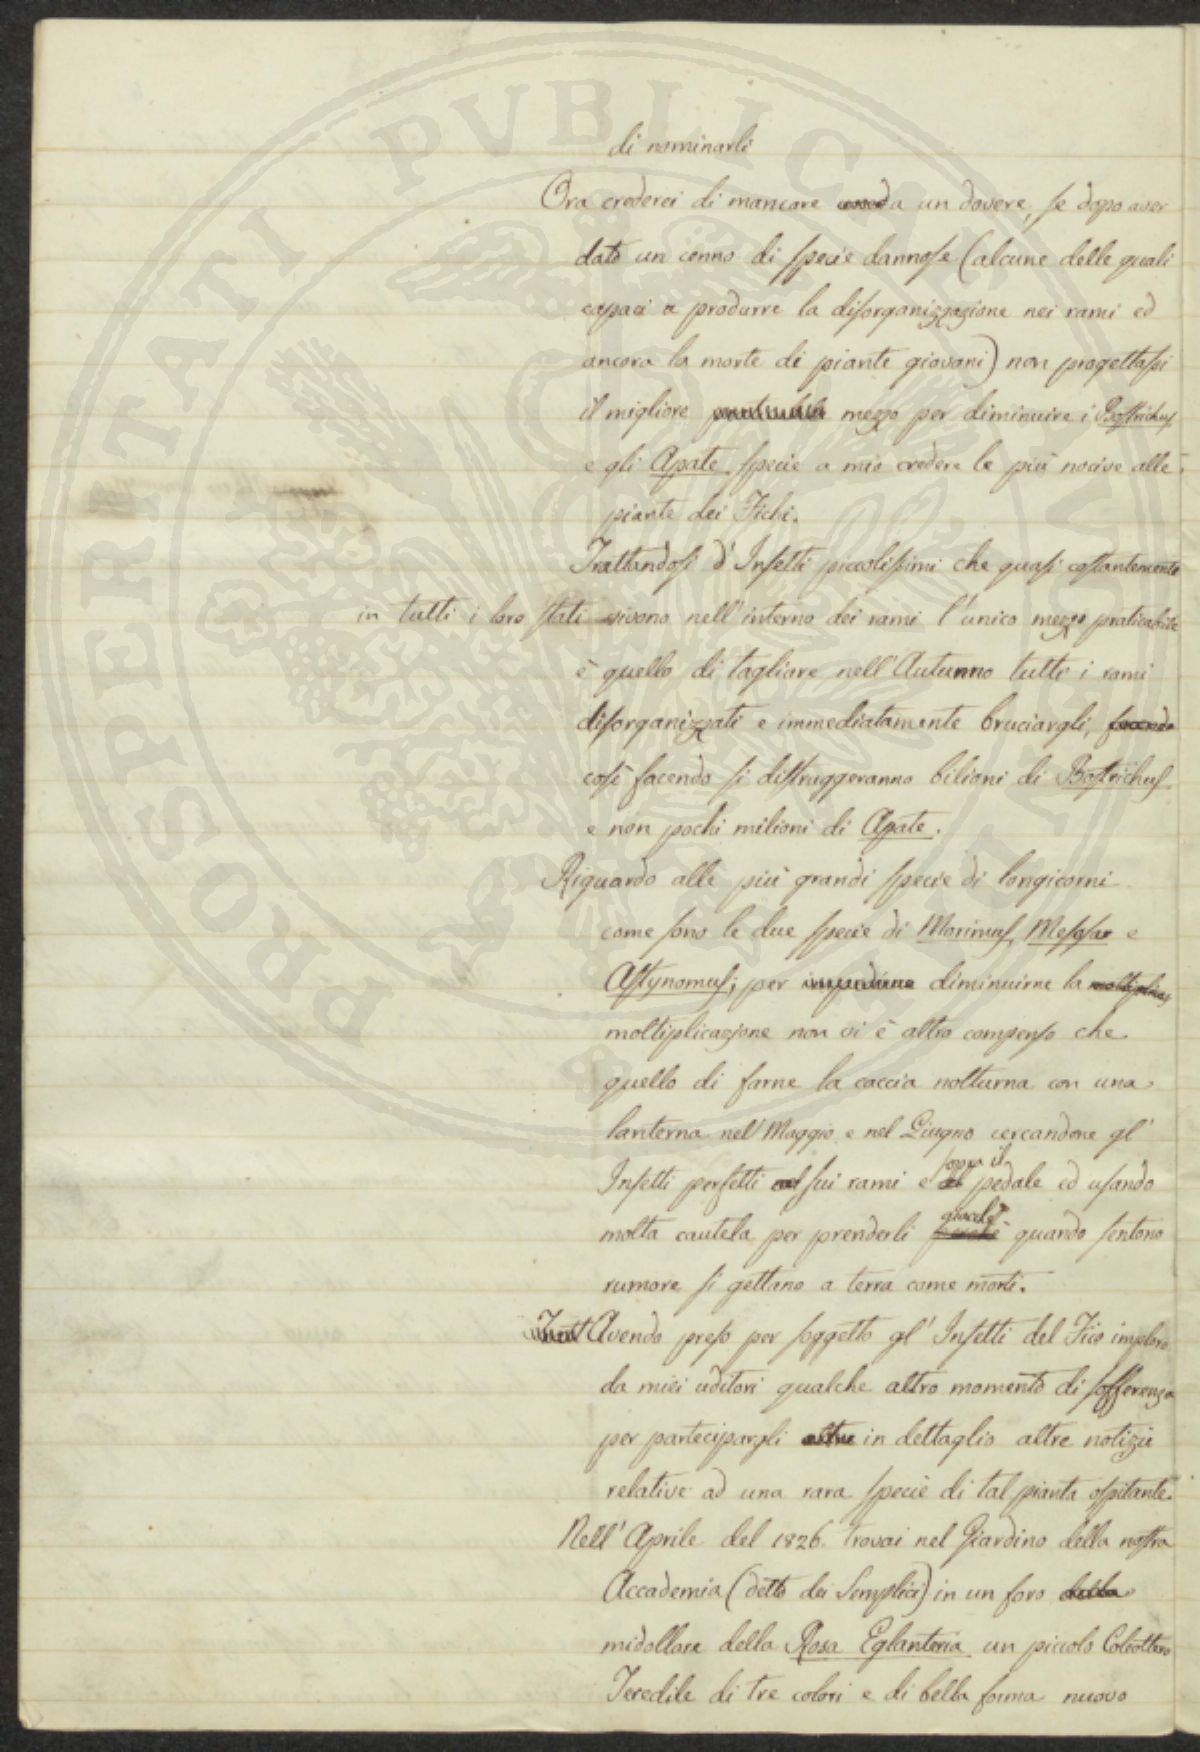 di nominarli
Ora crederei di mancare a un dovere, se dopo aver
dato un cenno di specie dannose (alcune delle quali
capaci a produrre la disorganizzazione nei rami ed
ancora la morte di piante giovani) non progettassi
il migliore mezzo per diminuire i Bostrichus
e gli Apate, specie a mio credere le più nocive alle
piante dei Fichi.
Trattandosi d'Insetti piccolissimi che quasi costantemente
in tutti i loro stati vivono nell'interno dei rami l'unico mezzo praticabile
è quello di tagliare nell'Autunno tutti i rami
disorganizzati e immediatamente bruciargli, facendo
così facendo si distruggeranno bilioni di Bostrichus
e non pochi milioni di Apate.
Riguardo alle più grandi specie di longicorni
come sono le due specie di Morimus, Mesosa e
Astynomus; per impedirne diminuirne la moltiplicaz
moltiplicazione non vi è altro compenso che
quello di farne la caccia notturna con una
lanterna nel Maggio e nel Giugno cercandone gl'
Insetti perfetti sui rami e sopra il pedale ed usando
molta cautela per prenderli giacchè perchè quando sentono
rumore si gettano a terra come morti.
Avendo preso per soggetto gl'Insetti del Fico imploro
da miei uditori qualche altro momento di sofferenza
per partecipargli altre in dettaglio altre notizie
relative ad una rara specie di tal pianta ospitante.
Nell'Aprile del 1826. trovai nel Giardino della nostra
Accademia (detto dei Semplici) in un foro della
midollare della Rosa Eglanteria un piccolo Coleottero
Teredile di tre colori e di bella forma nuovo
PROSPERITATI PUBLICAE